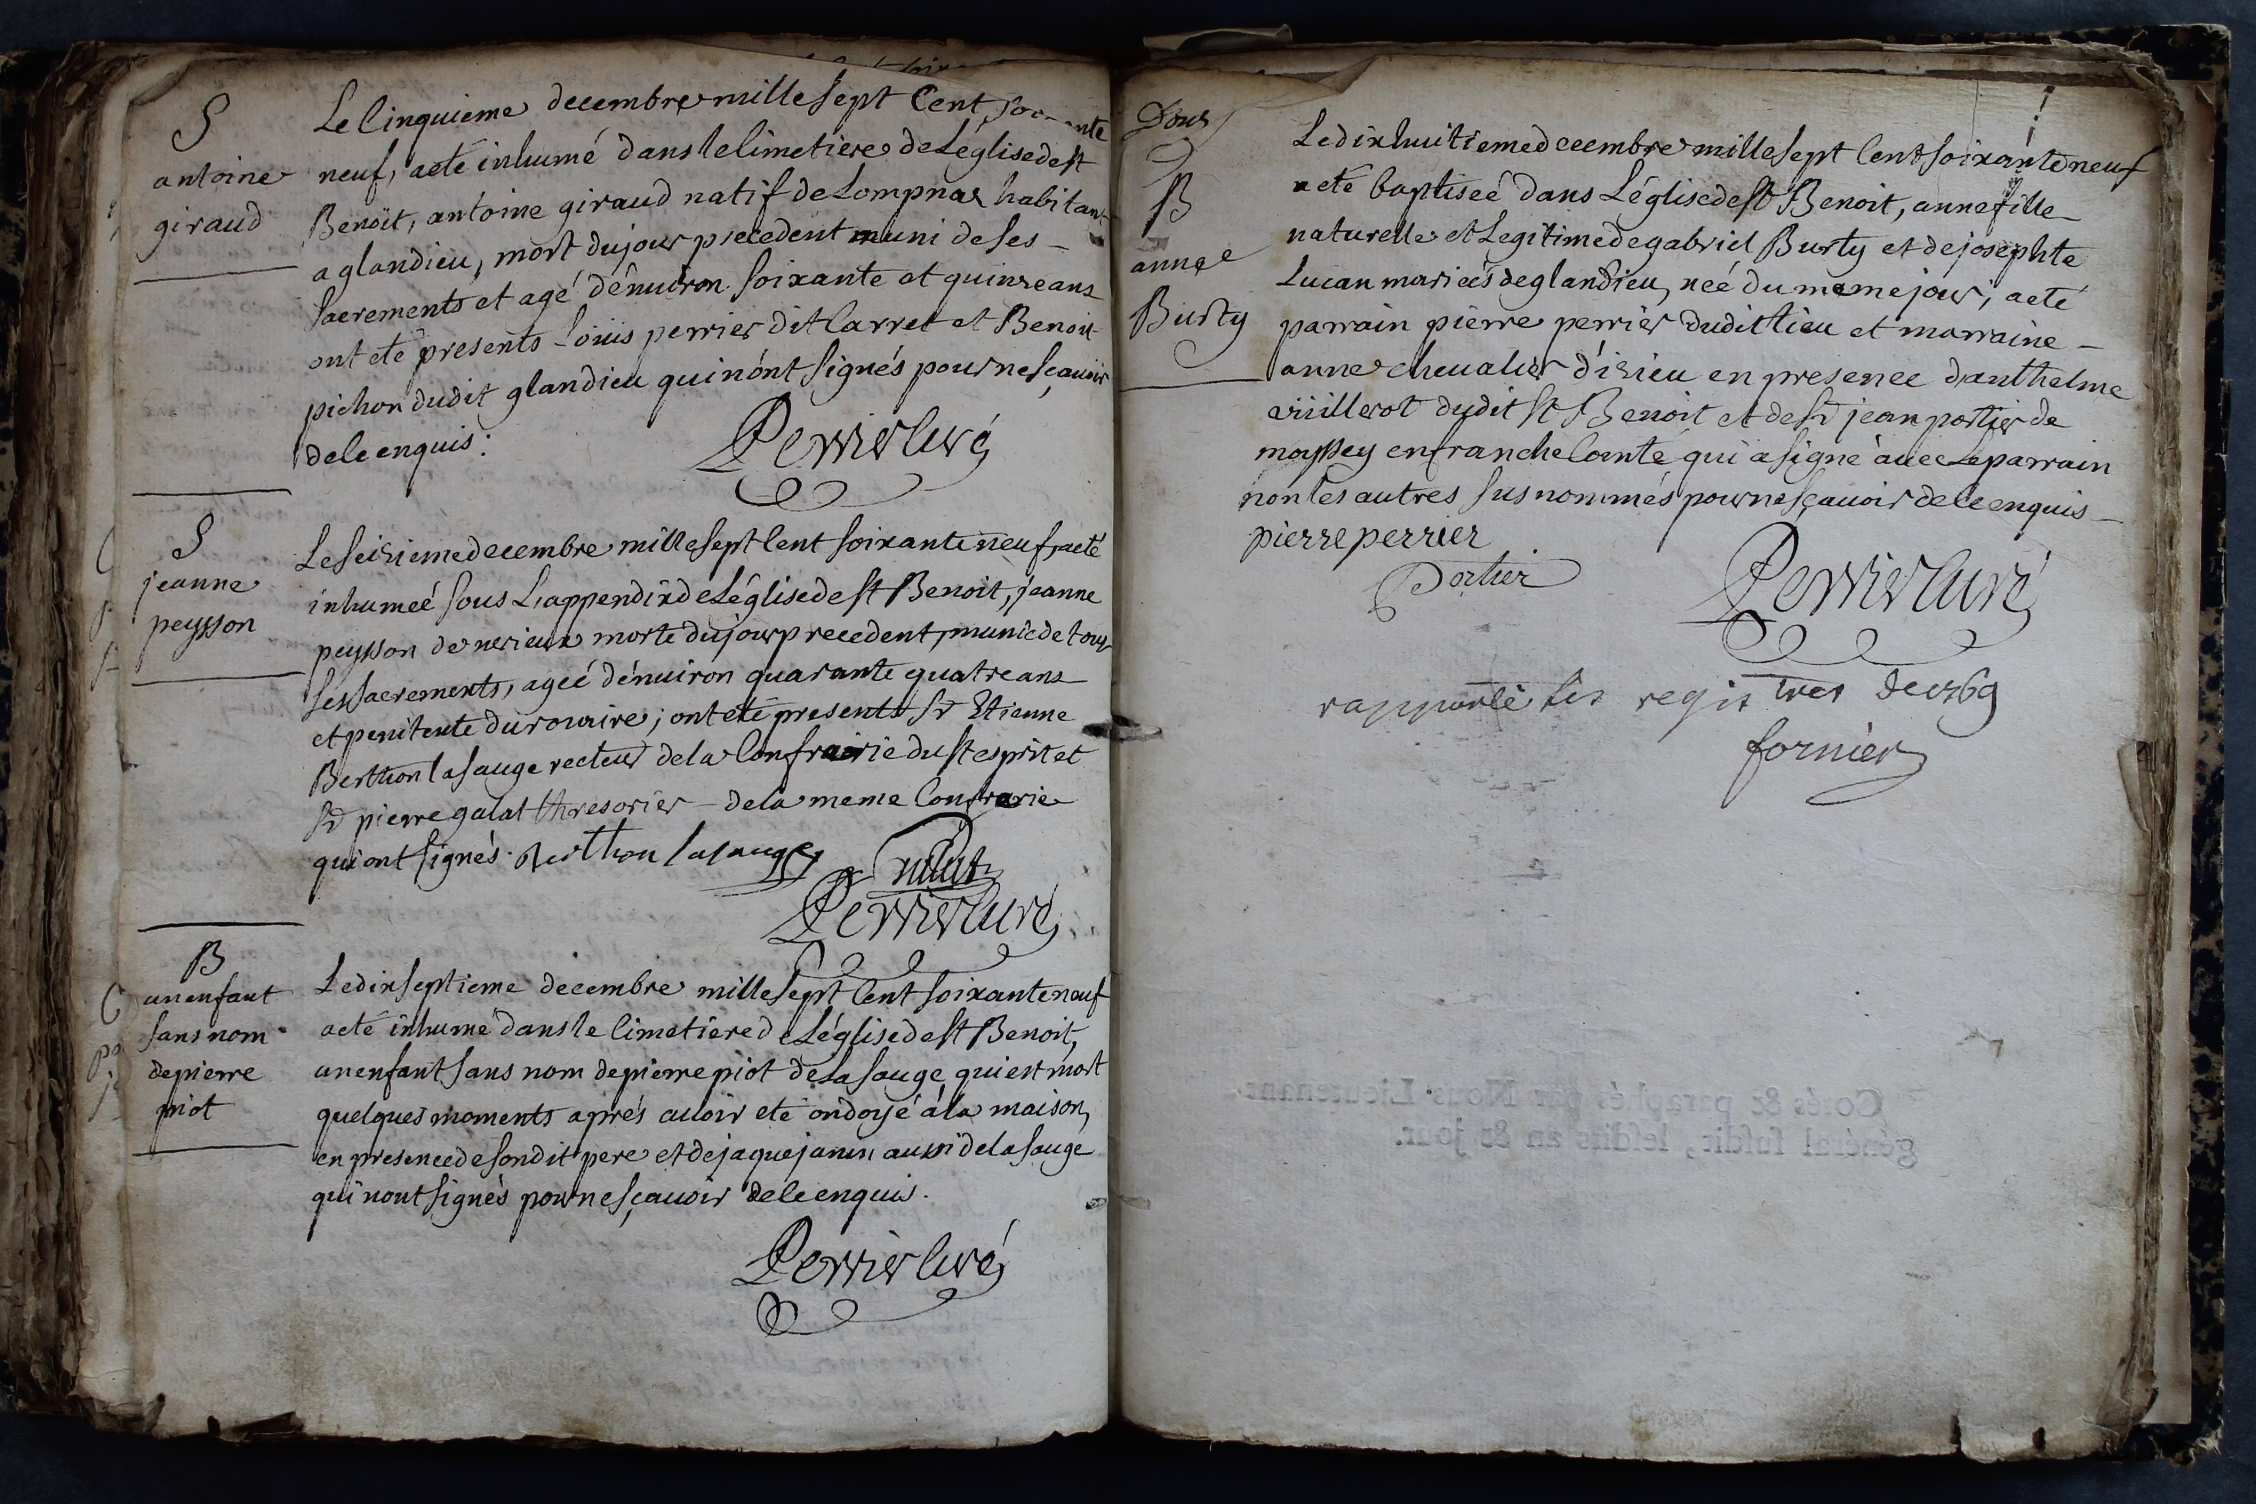 S
antoine
giraud
Le Cinquieme decembre mille sept Cent
neuf, a eté inhumé dans le Cimetiere de Léglise de st
Benoit, antoine giraud natif de Lompnas habitant
a glandieu, mort du jour precedent muni de ses
sacrements et agé d'environ soixante et quinze ans
ont eté presents Loüis perrier dit Carret et Benoit
pichon dudit glandieu qui nónt signés pour ne sçauoir
de ce enquis:
Perrier Curé
S
jeanne
peysson
Le seizieme decembre mille sept Cent soixante neuf, a eté
inhumeé sous L'appendix de Léglise de st Benoit, jeanne
peysson de merieux morte du jour precedent, munie de tous
ses sacrements, ageé dénuiron quarante quatre ans
et penitente du rozaire; ont eté presents sr Etienne
Berthon lasauge recteur de la Confrairie du st esprit et
sr pierre galat thresorier de la meme Confrerie
qui ont signés. Berthon lasauge
galat
Perrier Curé
B
un enfant
sans nom
de pierre
piot
Le dix septieme decembre mille sept Cent soixante neuf
a eté inhumé dans le Cimetiere de Léglise de st Benoit,
un enfant sans nom de pierre piot de la sauge qui est mort
quelques moments aprés auoir eté ondoyé á la maison,
en presence de son dit pere et de jaque janin aussi de la sauge
qui nont signés pour ne sçauoir de ce enquis.
Perrier Curé
B
anne
Burty
Le dix huitieme decembre mille sept Cent soixante neuf
a eté baptiseé dans Léglise de st Benoit, anne fille
naturelle et Legitime de gabriel Burty et de josephte
Lucan marieés de glandieu, neé du meme jour, a eté
parrain pierre perrier dudit lieu et marraine
anne cheualier d'izieu en presence danthelme
vüillerot dudit st Benoit et de sr jean portier de
moyssey en franche Comté qui a signé auec Le parrain
non les autres susnommés pour ne sçauoir de ce enquis
pierre perrier
Portier
Perrier Curé
rapporté les registres de 1769
fornier
Cotés & paraphés par Nous Lieutenant
général susdit, lesdits an & jour.